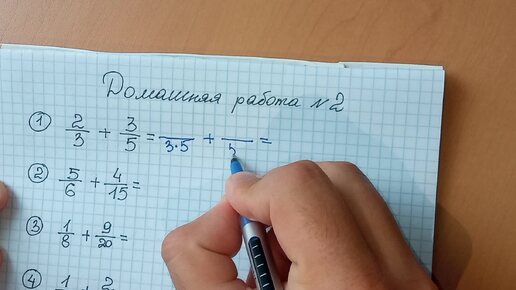 Домашняя работа №2
① 2/3 + 3/5 = /3·5 + /5 =
② 5/6 + 4/15 =
③ 1/8 + 9/20 =
④